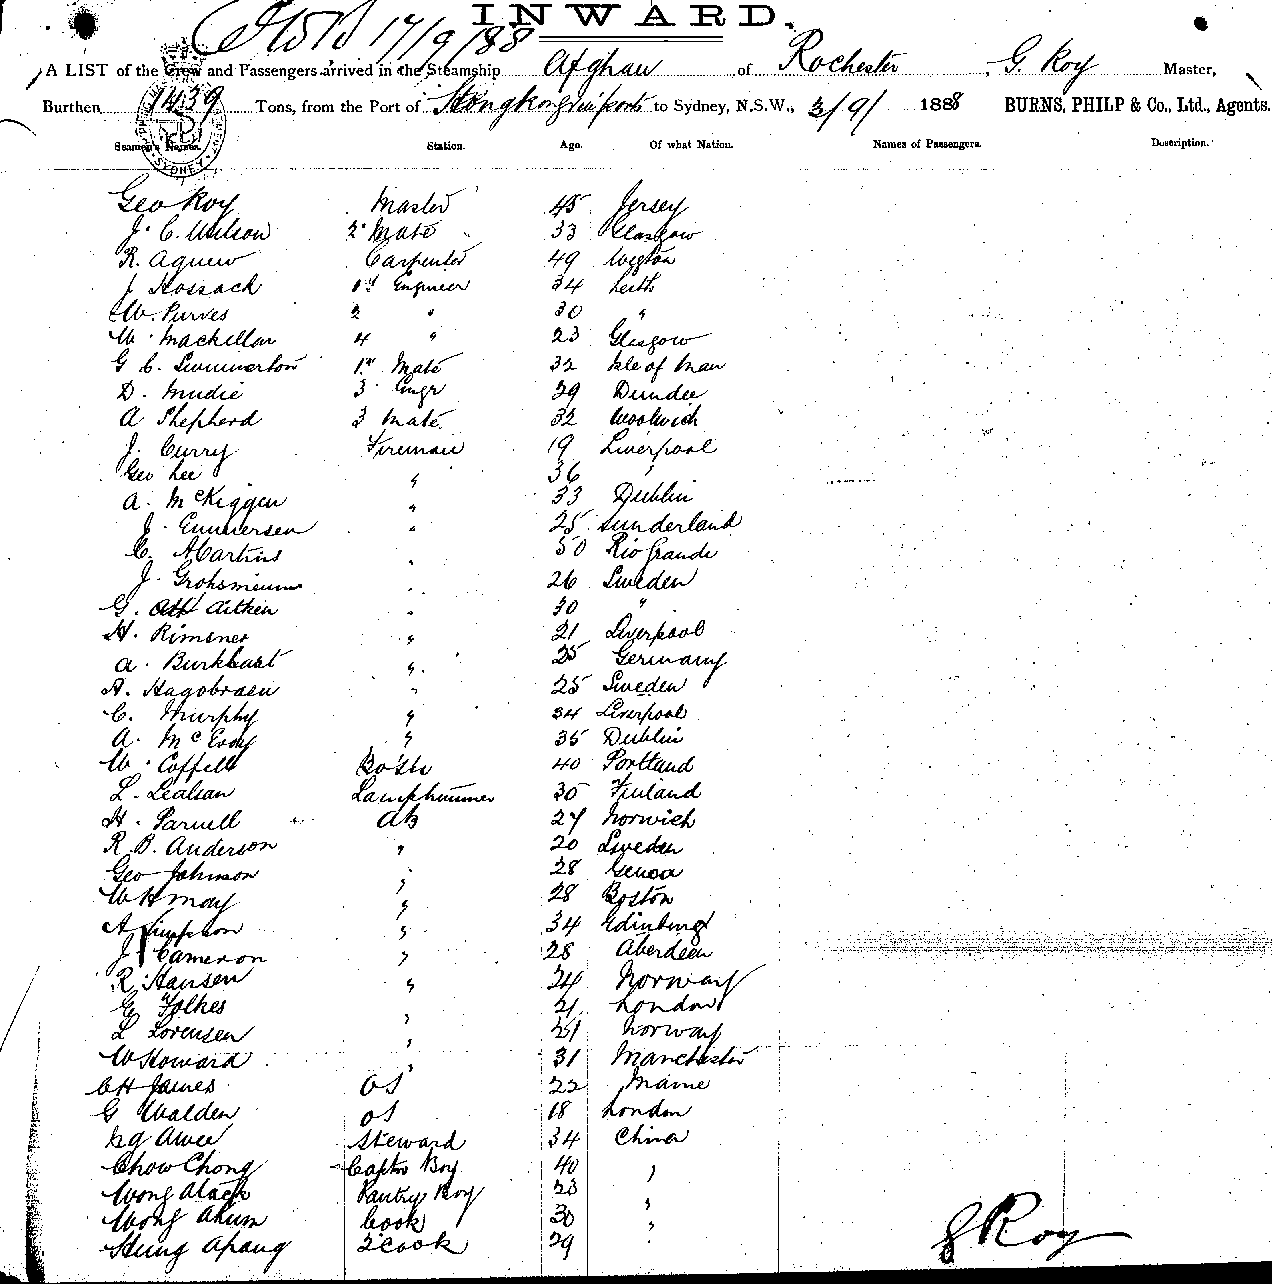 INWARD.
17/9/88
A LIST of the Crew and Passengers arrived in the Steamship Afghan of Rochester G. Roy Master,
Burthen 1439 Tons, from the Port of Hongkong to Sydney, N.S.W., 3/9/ 1888 BURNS, PHILP & Co., Ltd., Agents.
Seamen's Names. Station. Age. Of what Nation. Names of Passengers. Description.
SYDNEY
Geo Roy Master 45 Jersey
J. C. Wilson 2d Mate 33 Glasgow
R. Agnew Carpenter 49 Wigton
J Hossack 1st Engineer 34 Leith
W. Purves 2 " 30 "
W. Mackillan 4 " 23 Glasgow
G C. Summerton 1st Mate 32 Isle of Man
D. Mudie 3 Engr 29 Dundee
A Shepherd 3 Mate 32 Woolwich
J. Curry Fireman 19 Liverpool
Geo Lee " 36 "
A. McKiggen " 33 Dublin
J. Gunnersen " 25 Sunderland
C. Martins " 50 Rio Grande
J. " 26 Sweden
G. Aitken " 30 "
H. Rimoner " 21 Liverpool
A. Burkhart " 25 Germany
A. " 25 Sweden
C. Murphy " 34 Liverpool
A. McEvoy " 35 Dublin
W. Coffill Bosn 40 Portland
L. Lealsan Lamptrimmer 30 Finland
H. Parnell AB 27 Norwich
R. B. Anderson " 20 Sweden
Geo Johnson " 28 Genoa
W H May " 28 Boston
A Simpson " 34 Edinburg
J. Cameron " 28 Aberdeen
R. Hansen " 24 Norway
G Folkes " 21 London
L Lorensen " 21 Norway
W Howard " 31 Manchester
C H James OS 22 Maine
G Walden OS 18 London
Ng Awee Steward 34 China
Chow Chong Captns Boy 40 "
Wong Atack Pantry Boy 23 "
Wong Ahum Cook 30 "
Hung Apang 2 Cook 29 "
G Roy